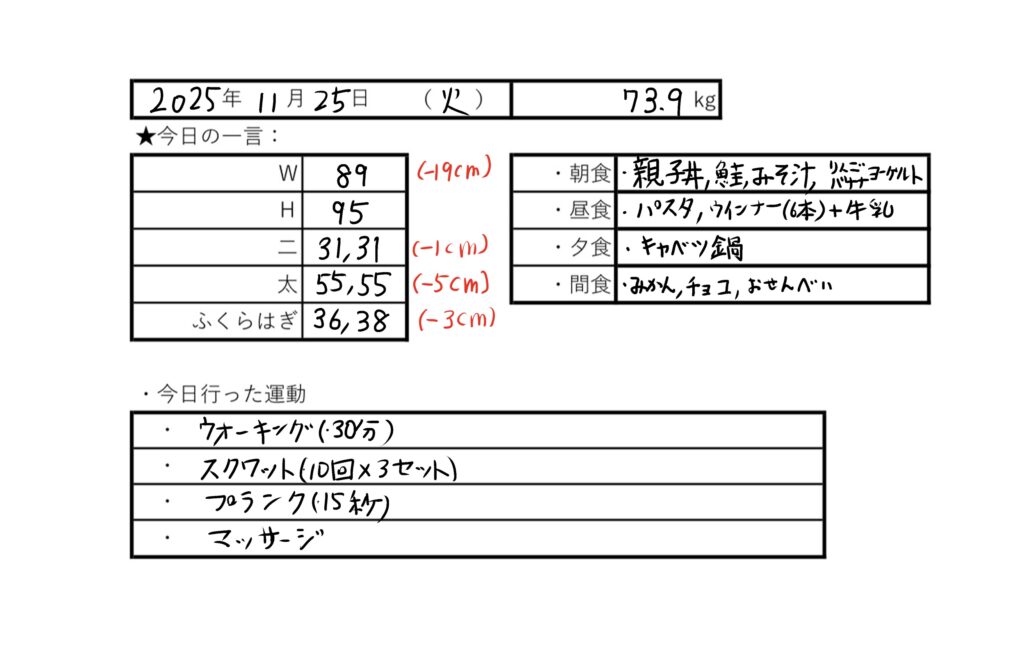 2025年 11月 25日 （火） 73.9 kg
★今日の一言：
W 89 (-19cm)
H 95
二 31,31 (-1cm)
太 55,55 (-5cm)
ふくらはぎ 36,38 (-3cm)
・朝食 ・親子丼,鮭,みそ汁, りんごバナナヨーグルト
・昼食 ・パスタ,ウインナー(6本)+牛乳
・夕食 ・キャベツ鍋
・間食 ・みかん,チョコ,おせんべい
・今日行った運動
・ ウォーキング(・30分)
・ スクワット(10回×3セット)
・ プランク(・15秒)
・ マッサージ